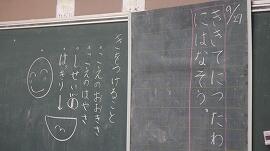 9/27
ききてにつたわ
にはなそう。
きをつけること
・こえのおおきさ
・こえのはやさ
・しせい
・はっきり